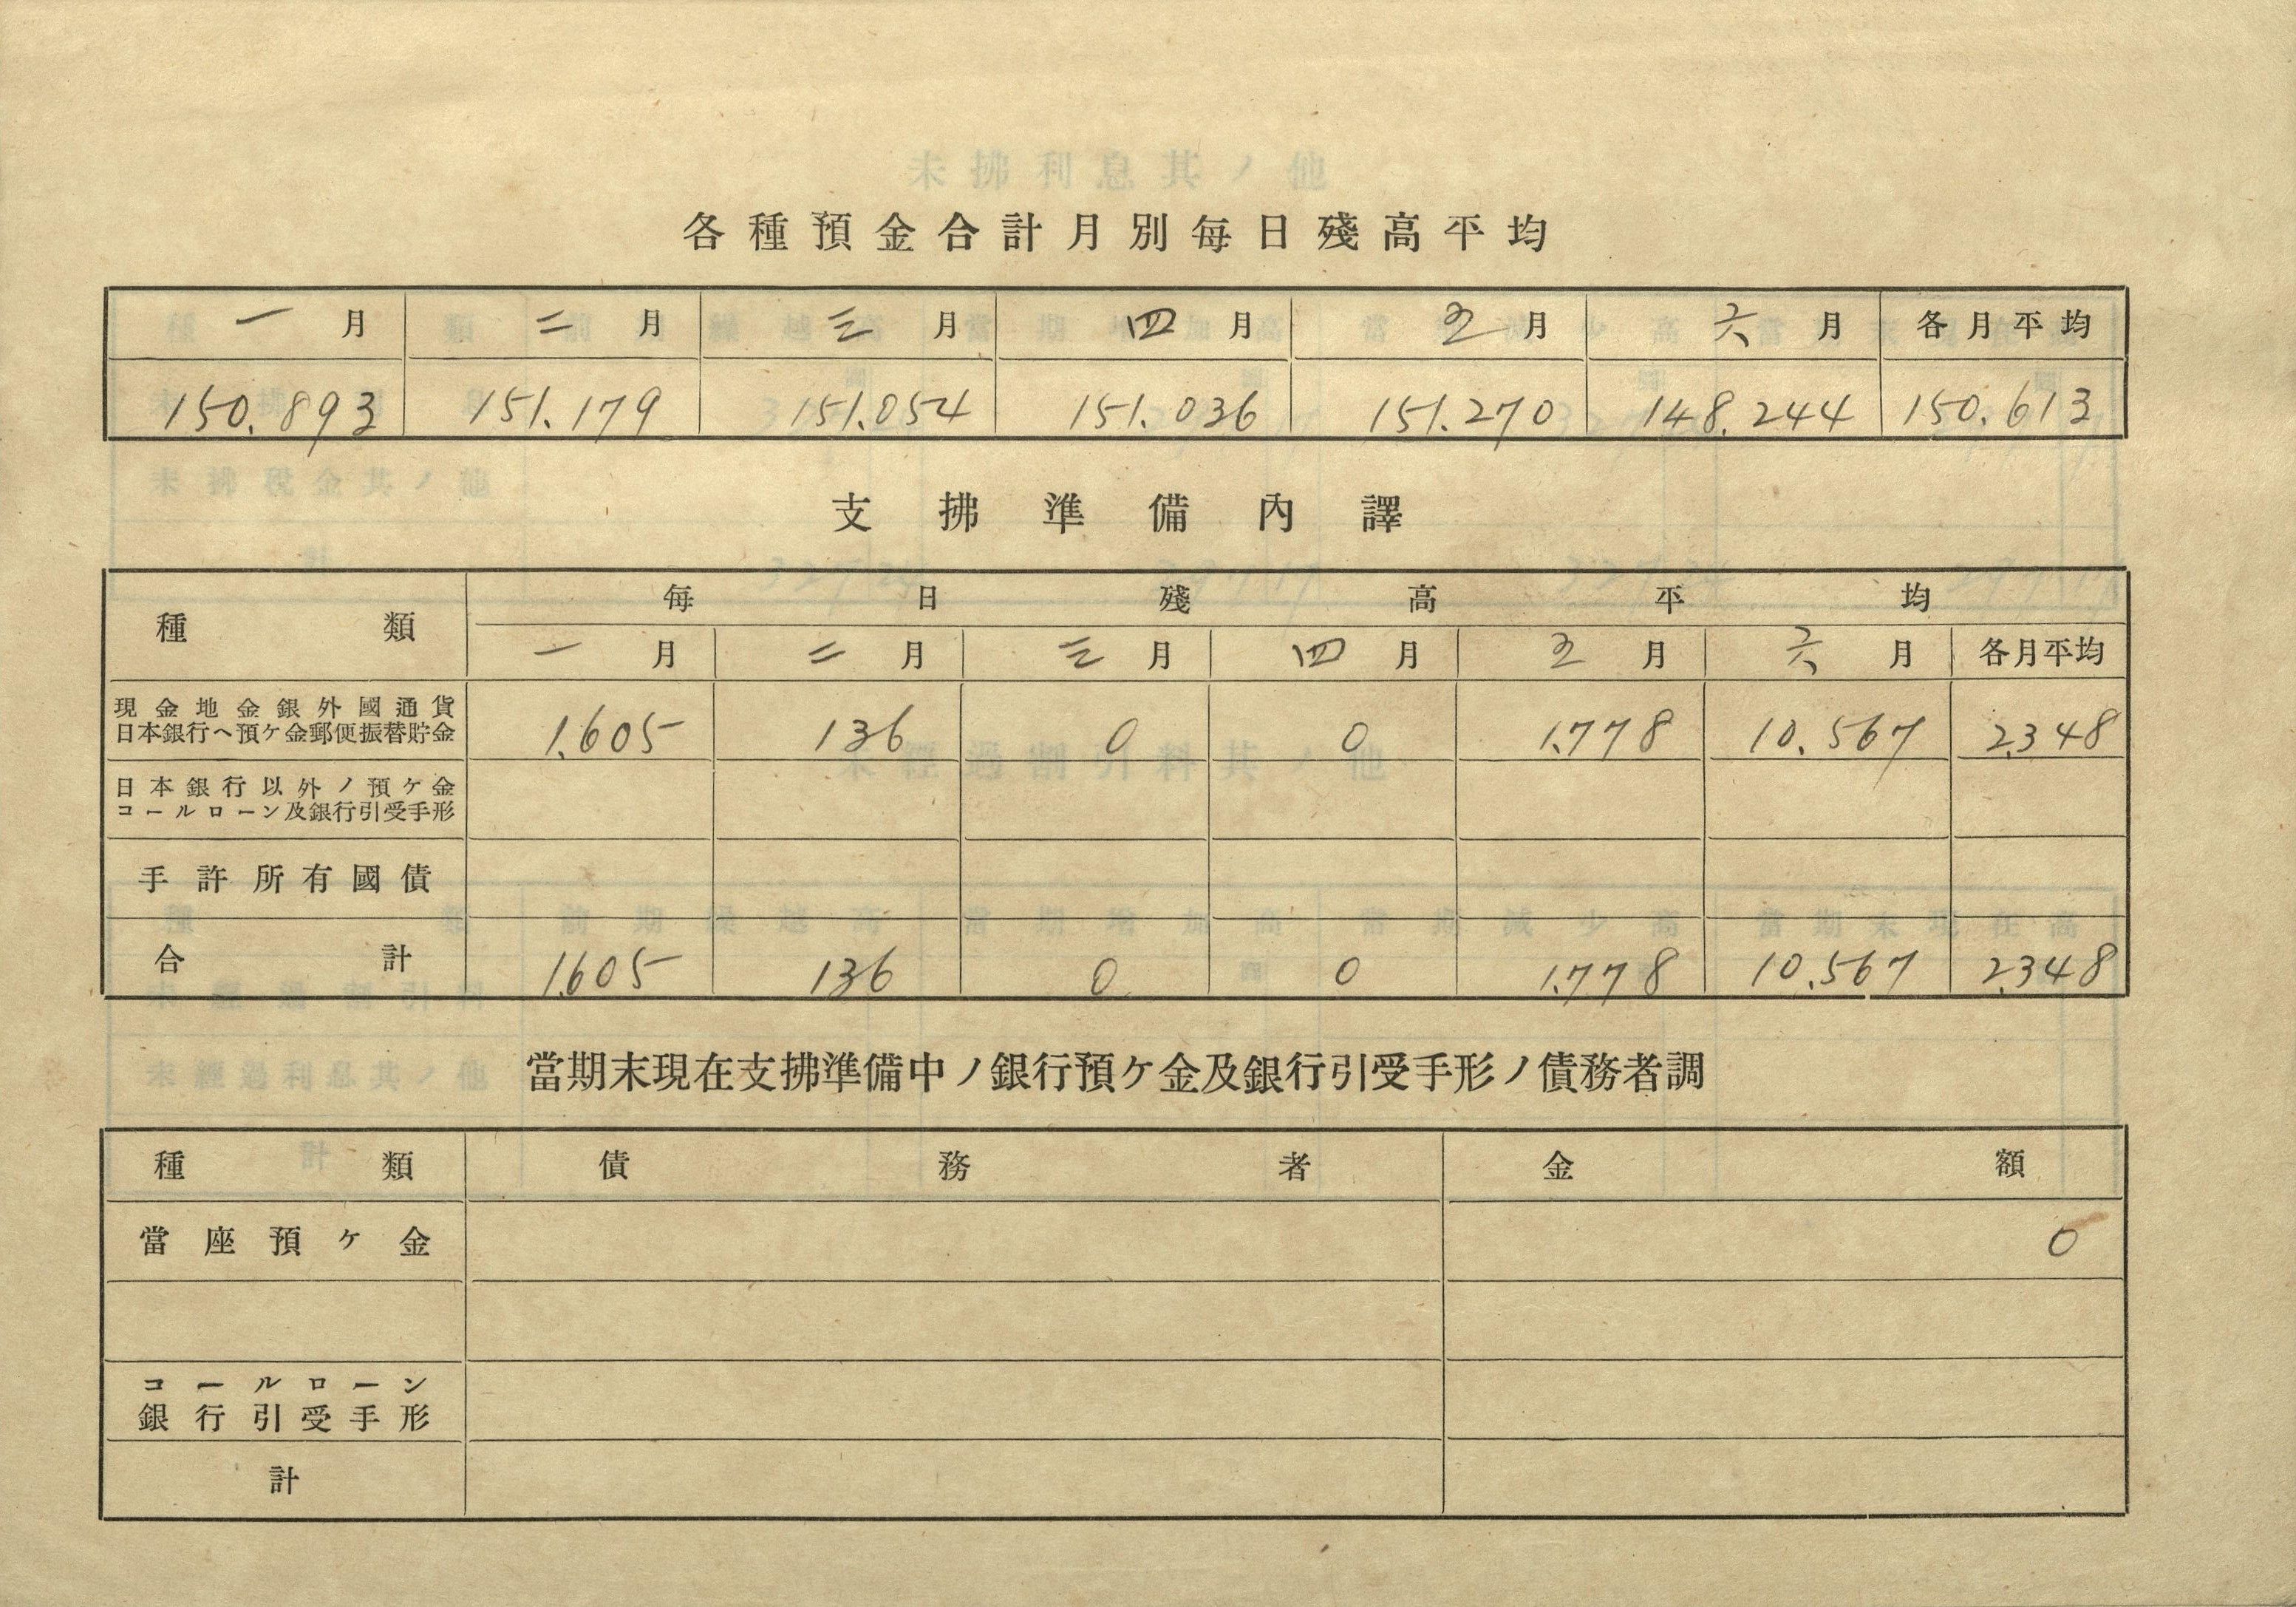 各種預金合計月別每日殘高平均
一月 二月 三月 四月 五月 六月 各月平均
150.893 151.179 151.054 151.036 151.270 148.244 150.613
支拂準備內譯
種類 每日殘高平均
一月 二月 三月 四月 五月 六月 各月平均
現金地金銀外國通貨
日本銀行ヘ預ケ金郵便振替貯金 1.605 136 0 0 1.778 10.567 2.348
日本銀行以外ノ預ケ金
コールローン及銀行引受手形
手許所有國債
合計 1.605 136 0 0 1.778 10.567 2.348
當期末現在支拂準備中ノ銀行預ケ金及銀行引受手形ノ債務者調
種類 債務者 金額
當座預ケ金 0
コールローン
銀行引受手形
計